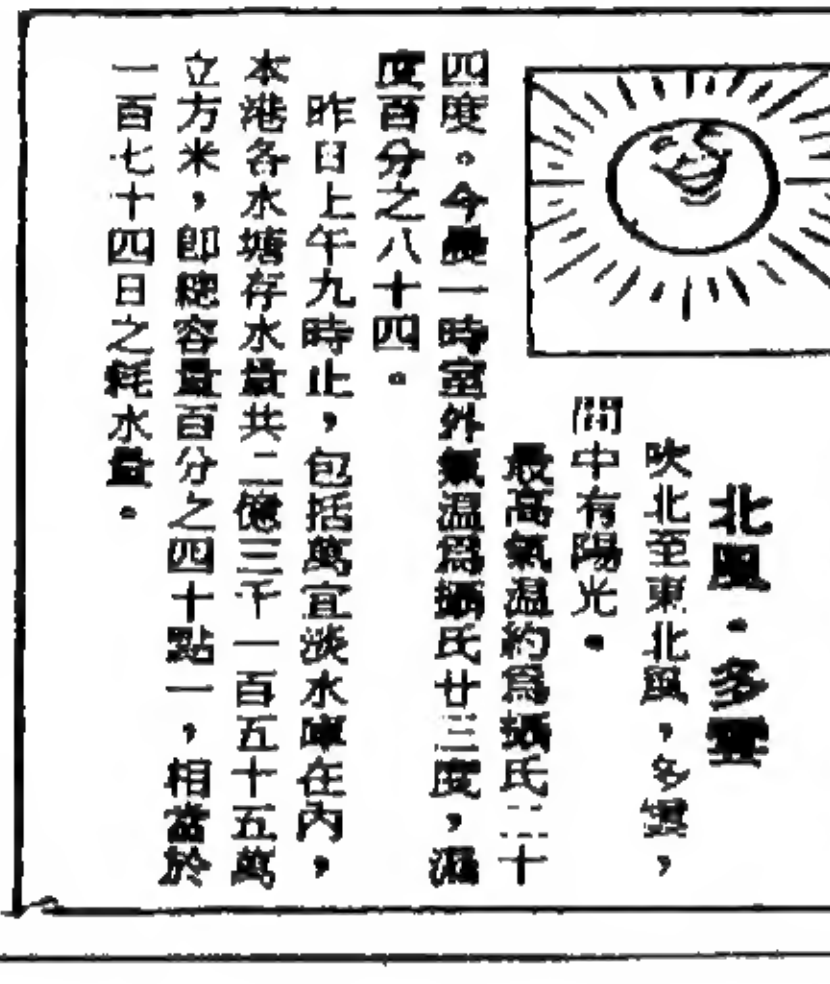 北風。多雲
吹北至東北風，多雲，
間中有陽光。
最高氣温約爲攝氏二十
四度。今晨一時室外氣温爲攝氏廿三度，濕
度百分之八十四。
昨日上午九時止，包括萬宜淡水庫在內，
本港各水塘存水量共二億三千一百五十五萬
立方米，即總容量百分之四十點一，相當於
一百七十四日之耗水量。